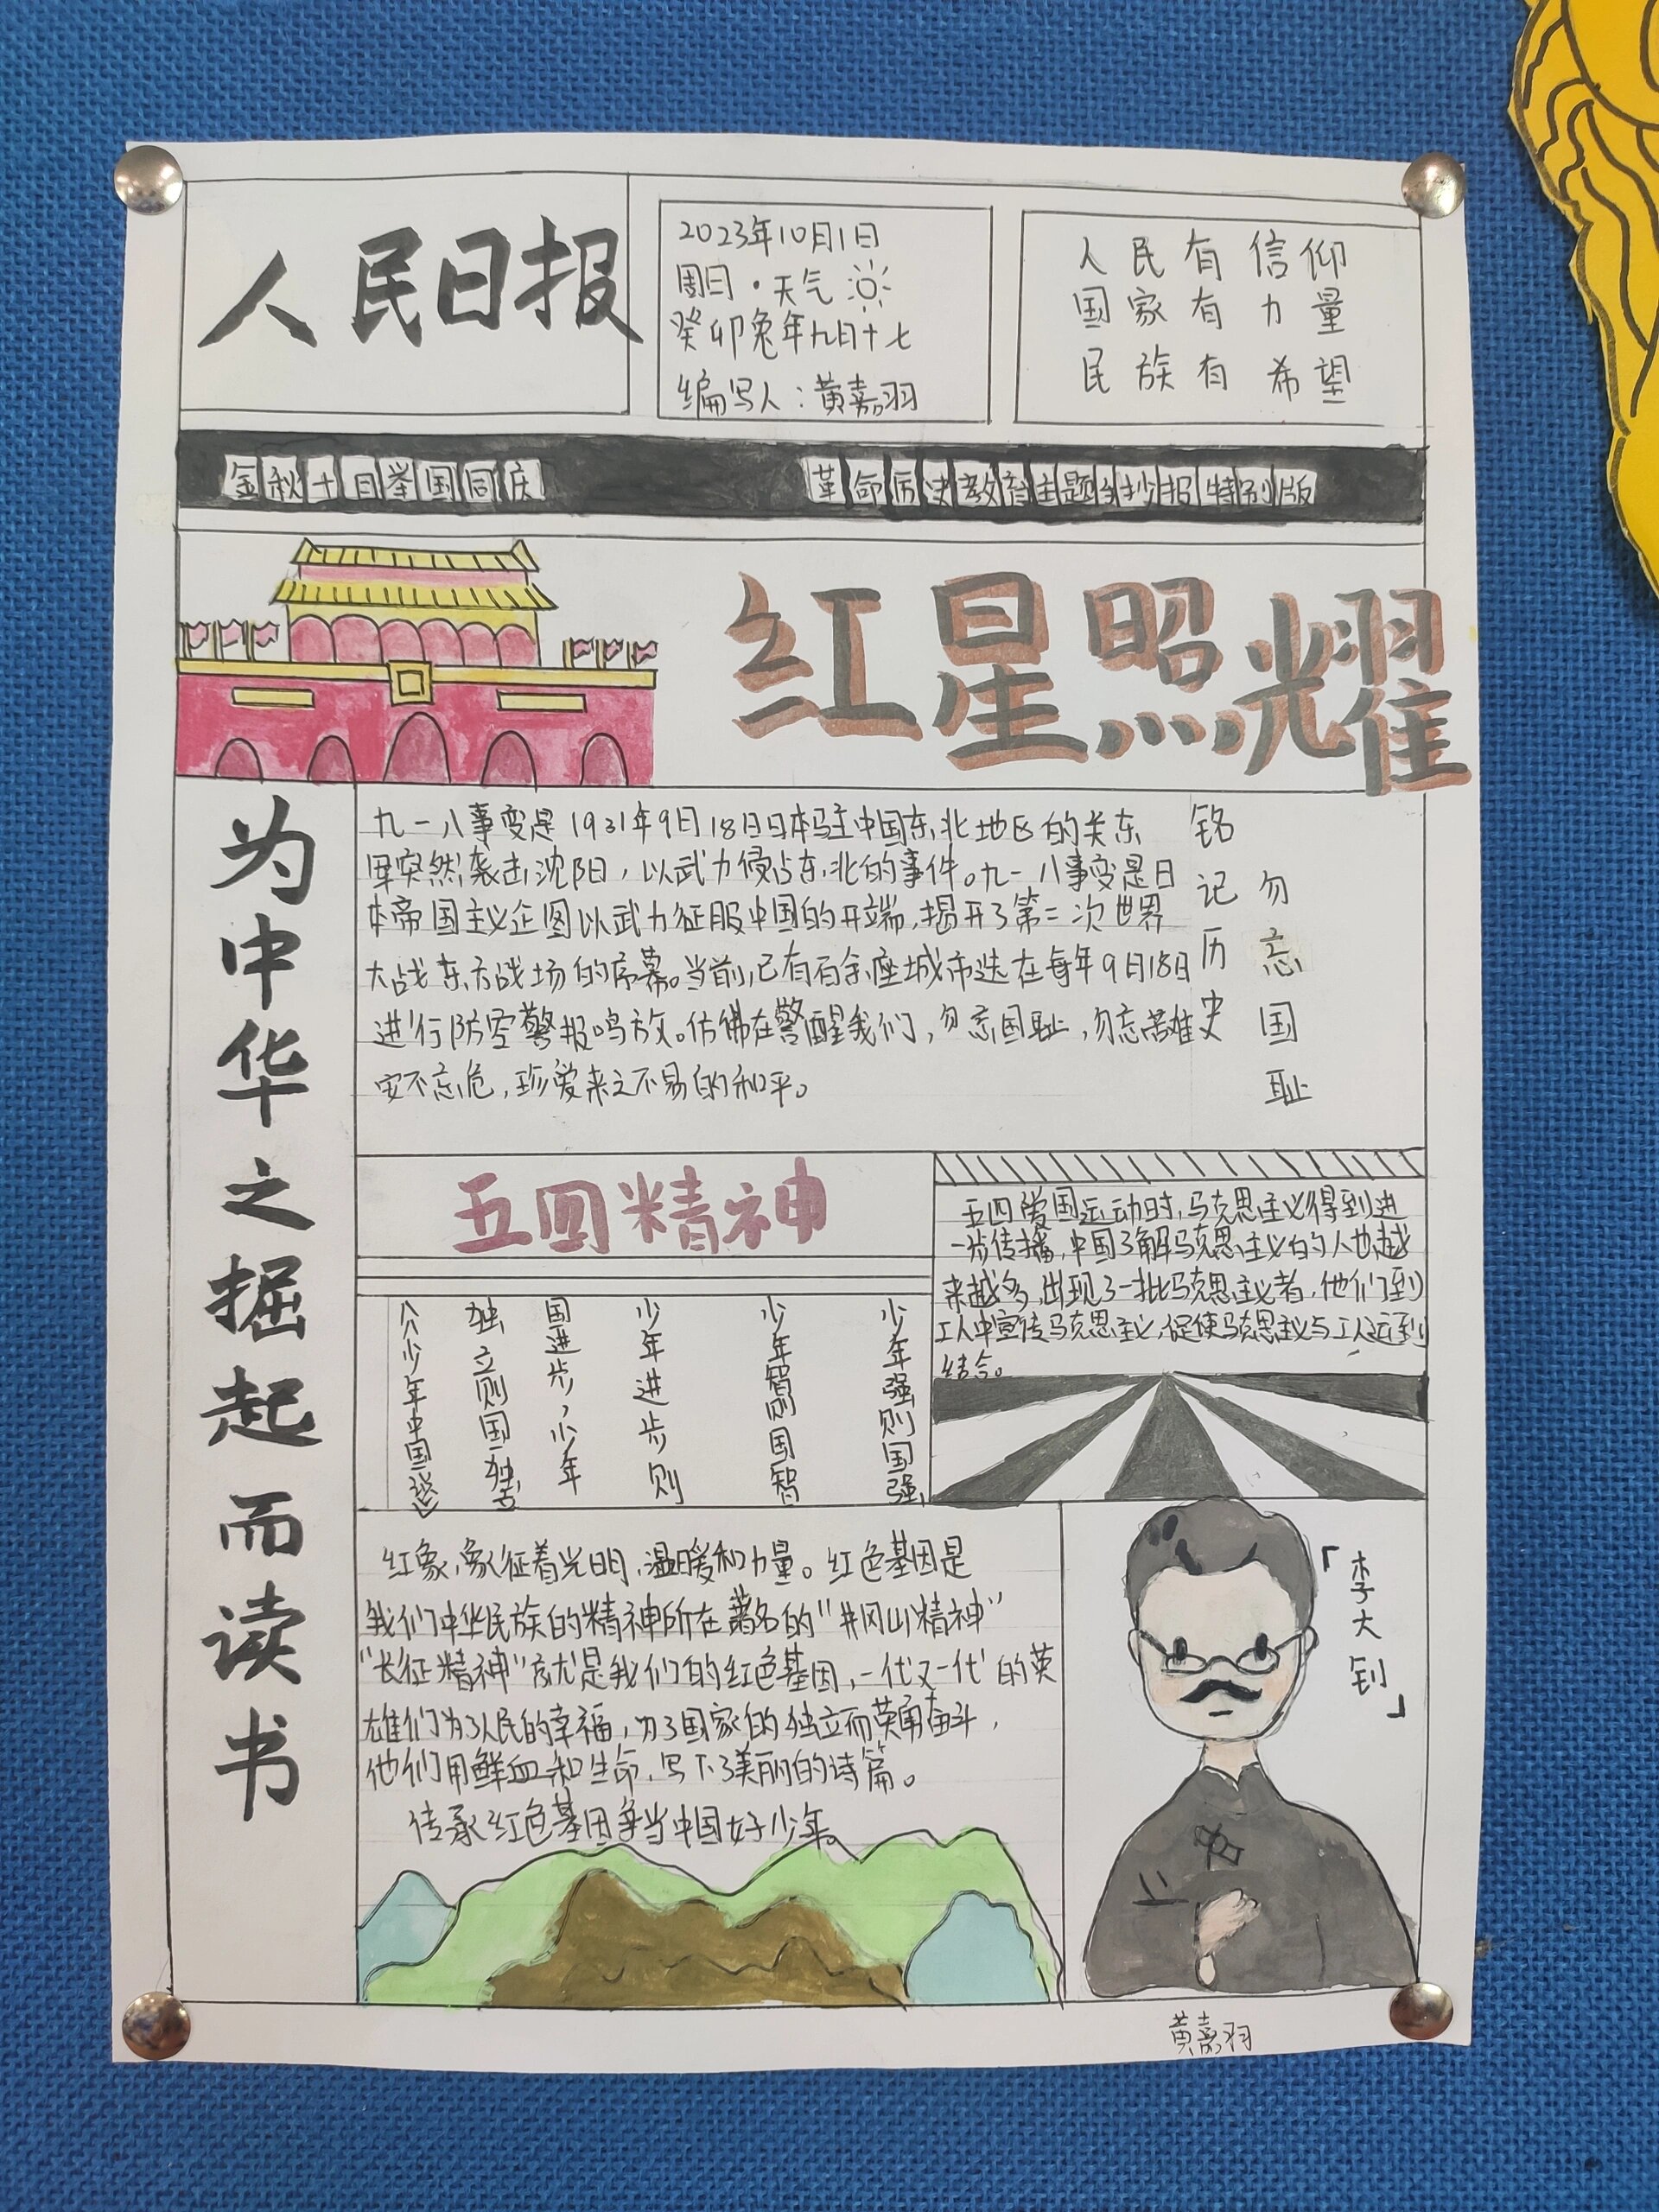 人民日报
2023年10月1日
周日·天气
癸卯兔年九月十七
编写人：黄嘉羽
人民有信仰
国家有力量
民族有希望
金秋十月举国同庆
革命历史教育主题手抄报特别版
红星照耀
为中华之掘起而读书
九一八事变是1931年9月18日日本驻中国东北地区的关东
军突然袭击沈阳，以武力侵占东北的事件。九一八事变是日
本帝国主义企图以武力征服中国的开端，揭开了第二次世界
大战东方战场的序幕。当前，已有百余座城市选在每年9月18日
进行防空警报鸣放。仿佛在警醒我们，勿忘国耻，勿忘苦难
安不忘危，珍爱来之不易的和平。
铭记历史
勿忘国耻
五四精神
少年强则国强
少年智则国智
少年进步则
国进步，少年
独立则国独立
五四爱国运动时，马克思主义得到进
一步传播，中国了解马克思主义的人也越
来越多，出现了一批马克思主义者，他们到
工人中宣传马克思主义，促使马克思主义与工人运动
结合。
红象，象征着光明，温暖和力量。红色基因是
我们中华民族的精神所在著名的"井冈山精神"
"长征精神"就是我们的红色基因，一代又一代的英
雄们为了人民的幸福，为了国家的独立而英勇奋斗，
他们用鲜血和生命，写下了美丽的诗篇。
传承红色基因争当中国好少年。
「李大钊」
黄嘉羽